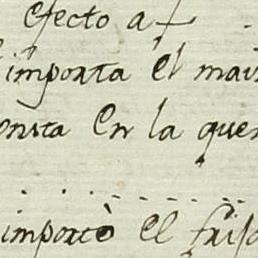 efecto a
importa el mai
onsta en la quen
importò el friso